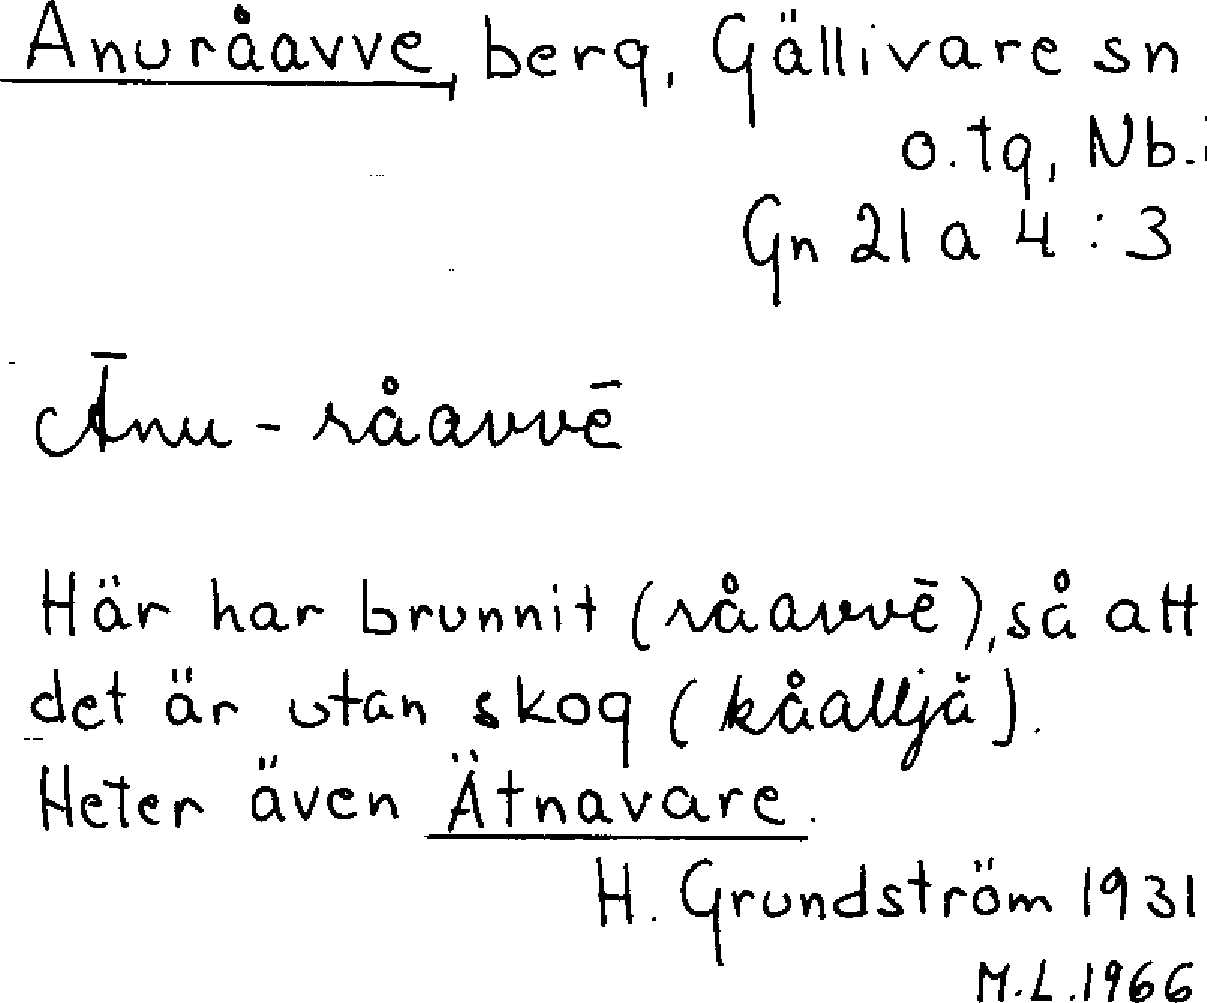 Anuråavve, berg, Gällivare sn
o. tg, Nb.
Gn 21 a 4 : 3
Ānu - råavvē
Här har brunnit (råavvē), så att
det är utan skog (kåalljă).
Heter även Ätnavare.
H. Grundström 1931
M.L. 1966